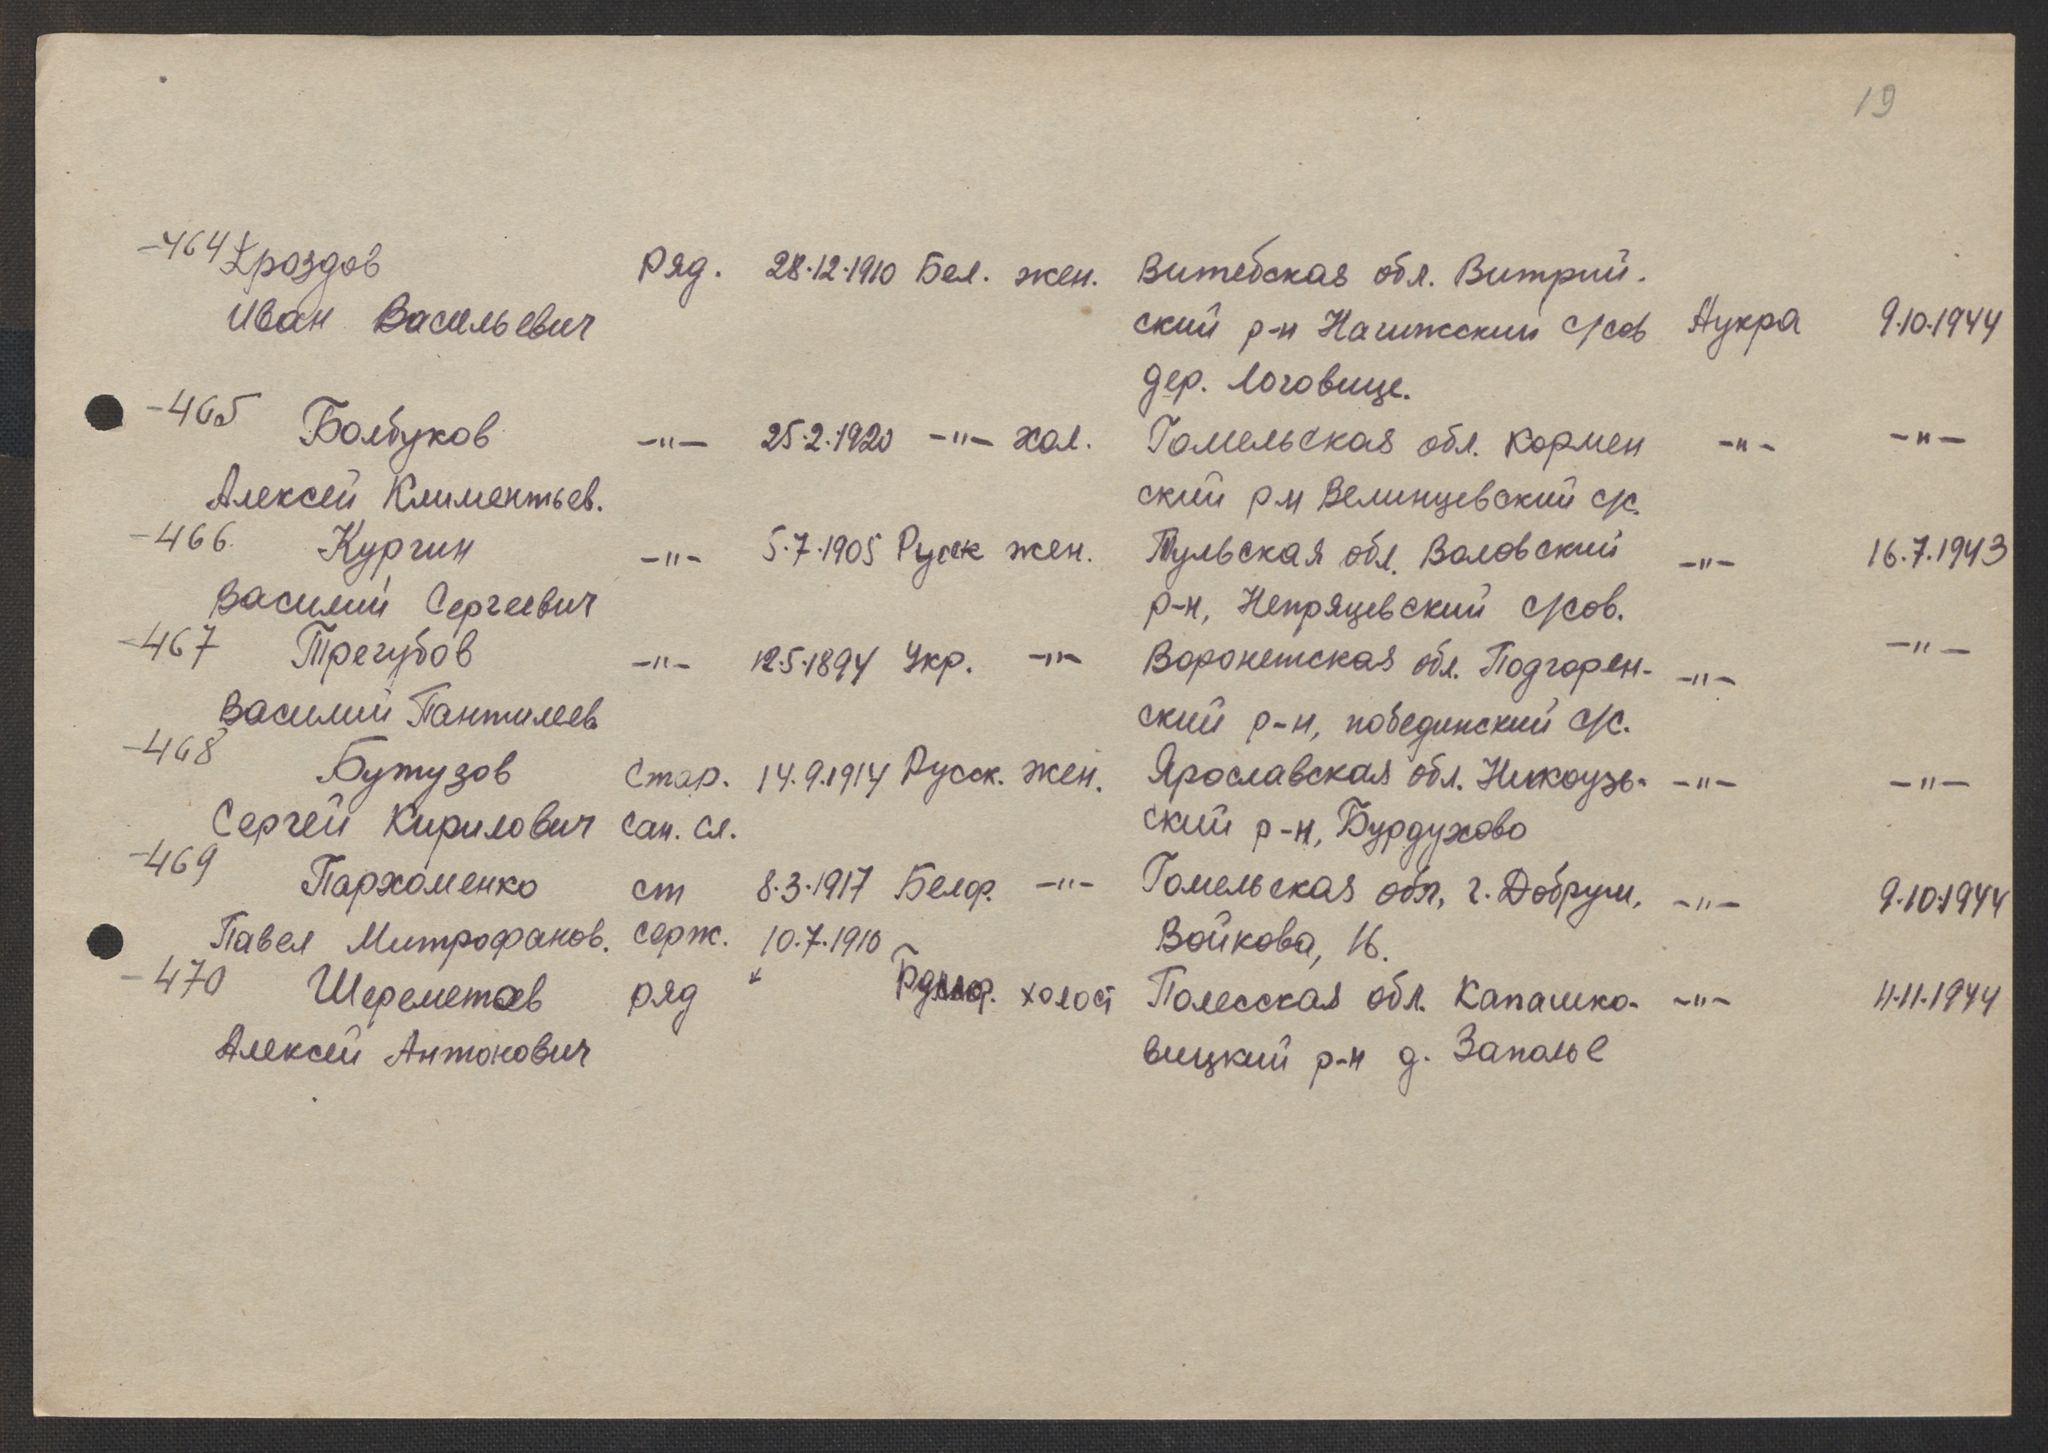 19
-464 Дроздов ряд. 28.12.1910 Бел. жен. Витебская обл. Витрий-
Иван Васильевич ский р-н Нагижский с/сов Аукра 9.10.1944
дер. Логовище.
-465 Болбуков -"- 25.2.1920 -"- хол. Гомельская обл. Кормен -"- -"-
Алексей Климентьев. ский р-н Велинцевский с/с.
-466. Кургин -"- 5.7.1905 Русск жен. Тульская обл. Воловский -"- 16.7.1943
Василий Сергеевич р-н, Непрядевский с/сов.
-467 Трегубов -"- 12.5.1894 Укр. -"- Воронежская обл. Подгорен- -"- -"-
Василий Пантилеев ский р-н, побединский с/с.
-468 Бутузов Стар. 14.9.1914 Русск. жен. Ярославская обл. Никоузь- -"- -"-
Сергей Кирилович Сан. сл. ский р-н, Бурдухово
-469 Пархоменко ст 8.3.1917 Белор. -"- Гомельская обл, г. Добруш, -"- 9.10.1944
Павел Митрофанов. серж. 10.7.1910 Войкова, 16.
-470 Шереметов ряд холост Полесская обл. Капашко- -"- 11.11.1944
Алексей Антонович вицкий р-н д. Заполье